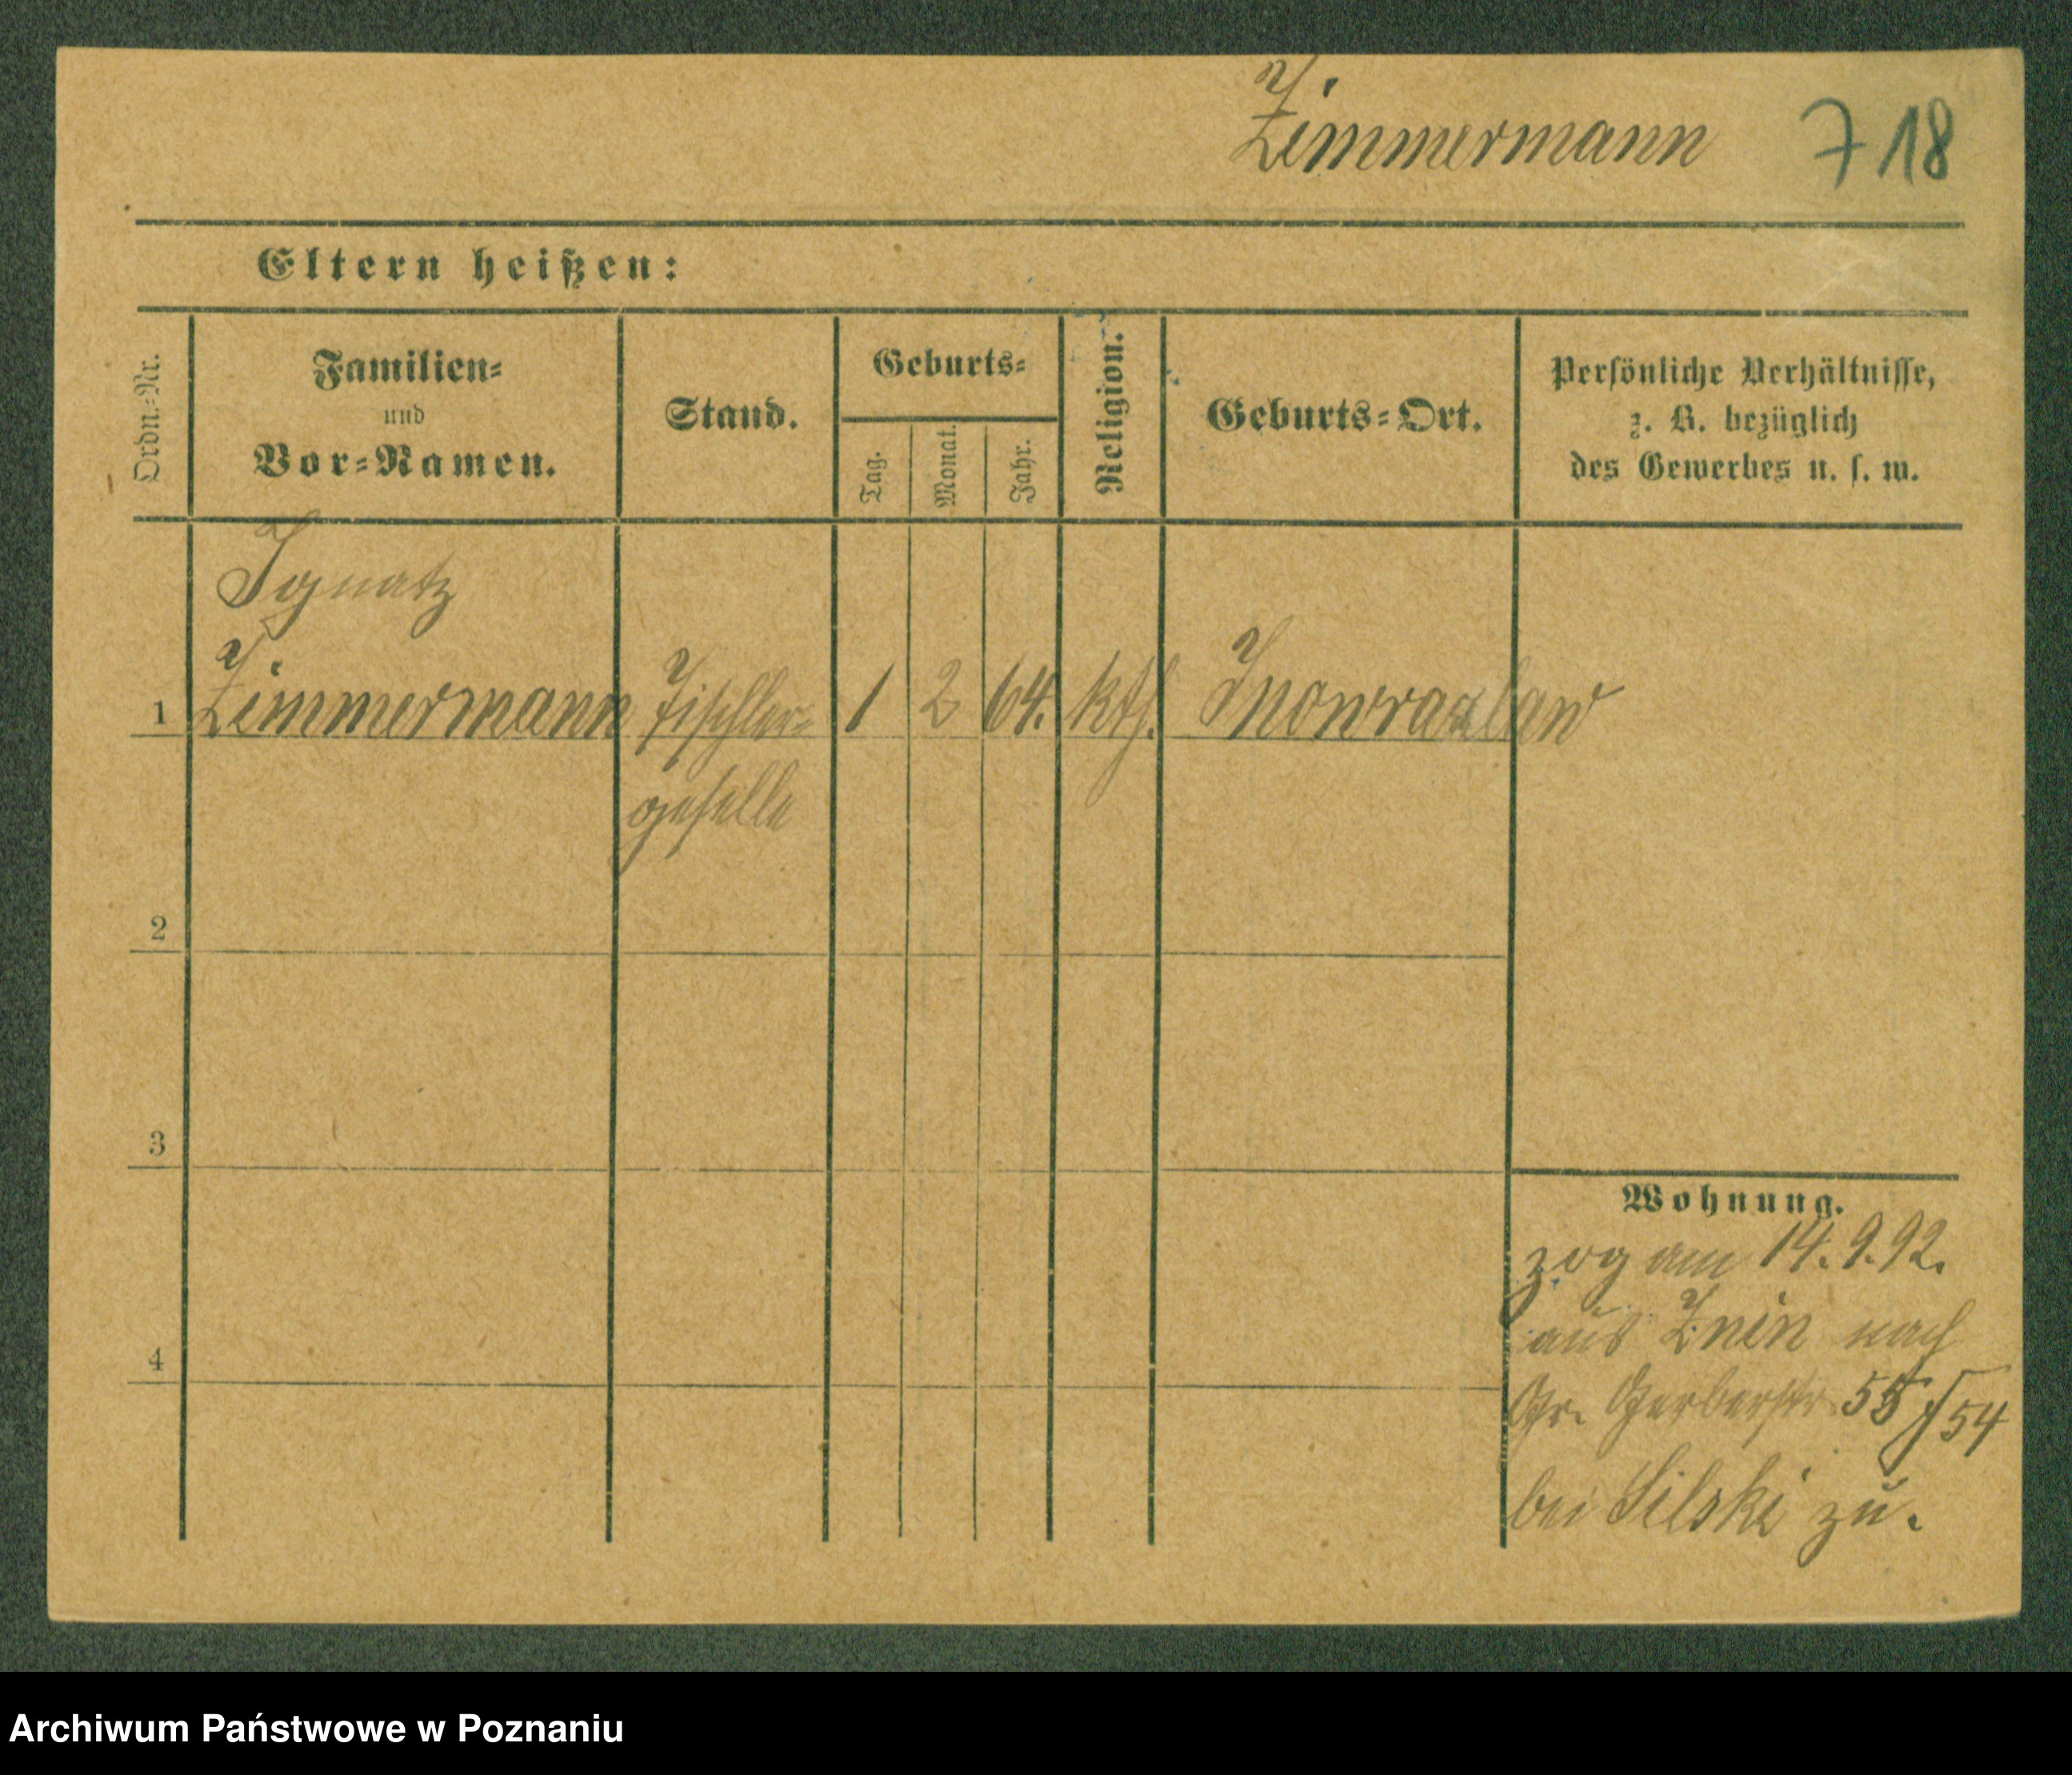 Zimmermann 718
Eltern heißen:
Ordn.=Nr.
Familien=
und
Vor=Namen.
Stand.
Geburts=
Tag.
Monat.
Jahr.
Religion.
Geburts=Ort.
Persönliche Verhältnisse,
z. B. bezüglich
des Gewerbes u. s. w.
Ignatz
1 Zimmermann Tischler= 1 2 64. kth. Inowrazlaw
geselle
2
3
4
Wohnung.
zog am 14.9.92.
aus Znin nach
Gr. Gerberstr. 55/54
bei Silski zu.
Archiwum Państwowe w Poznaniu